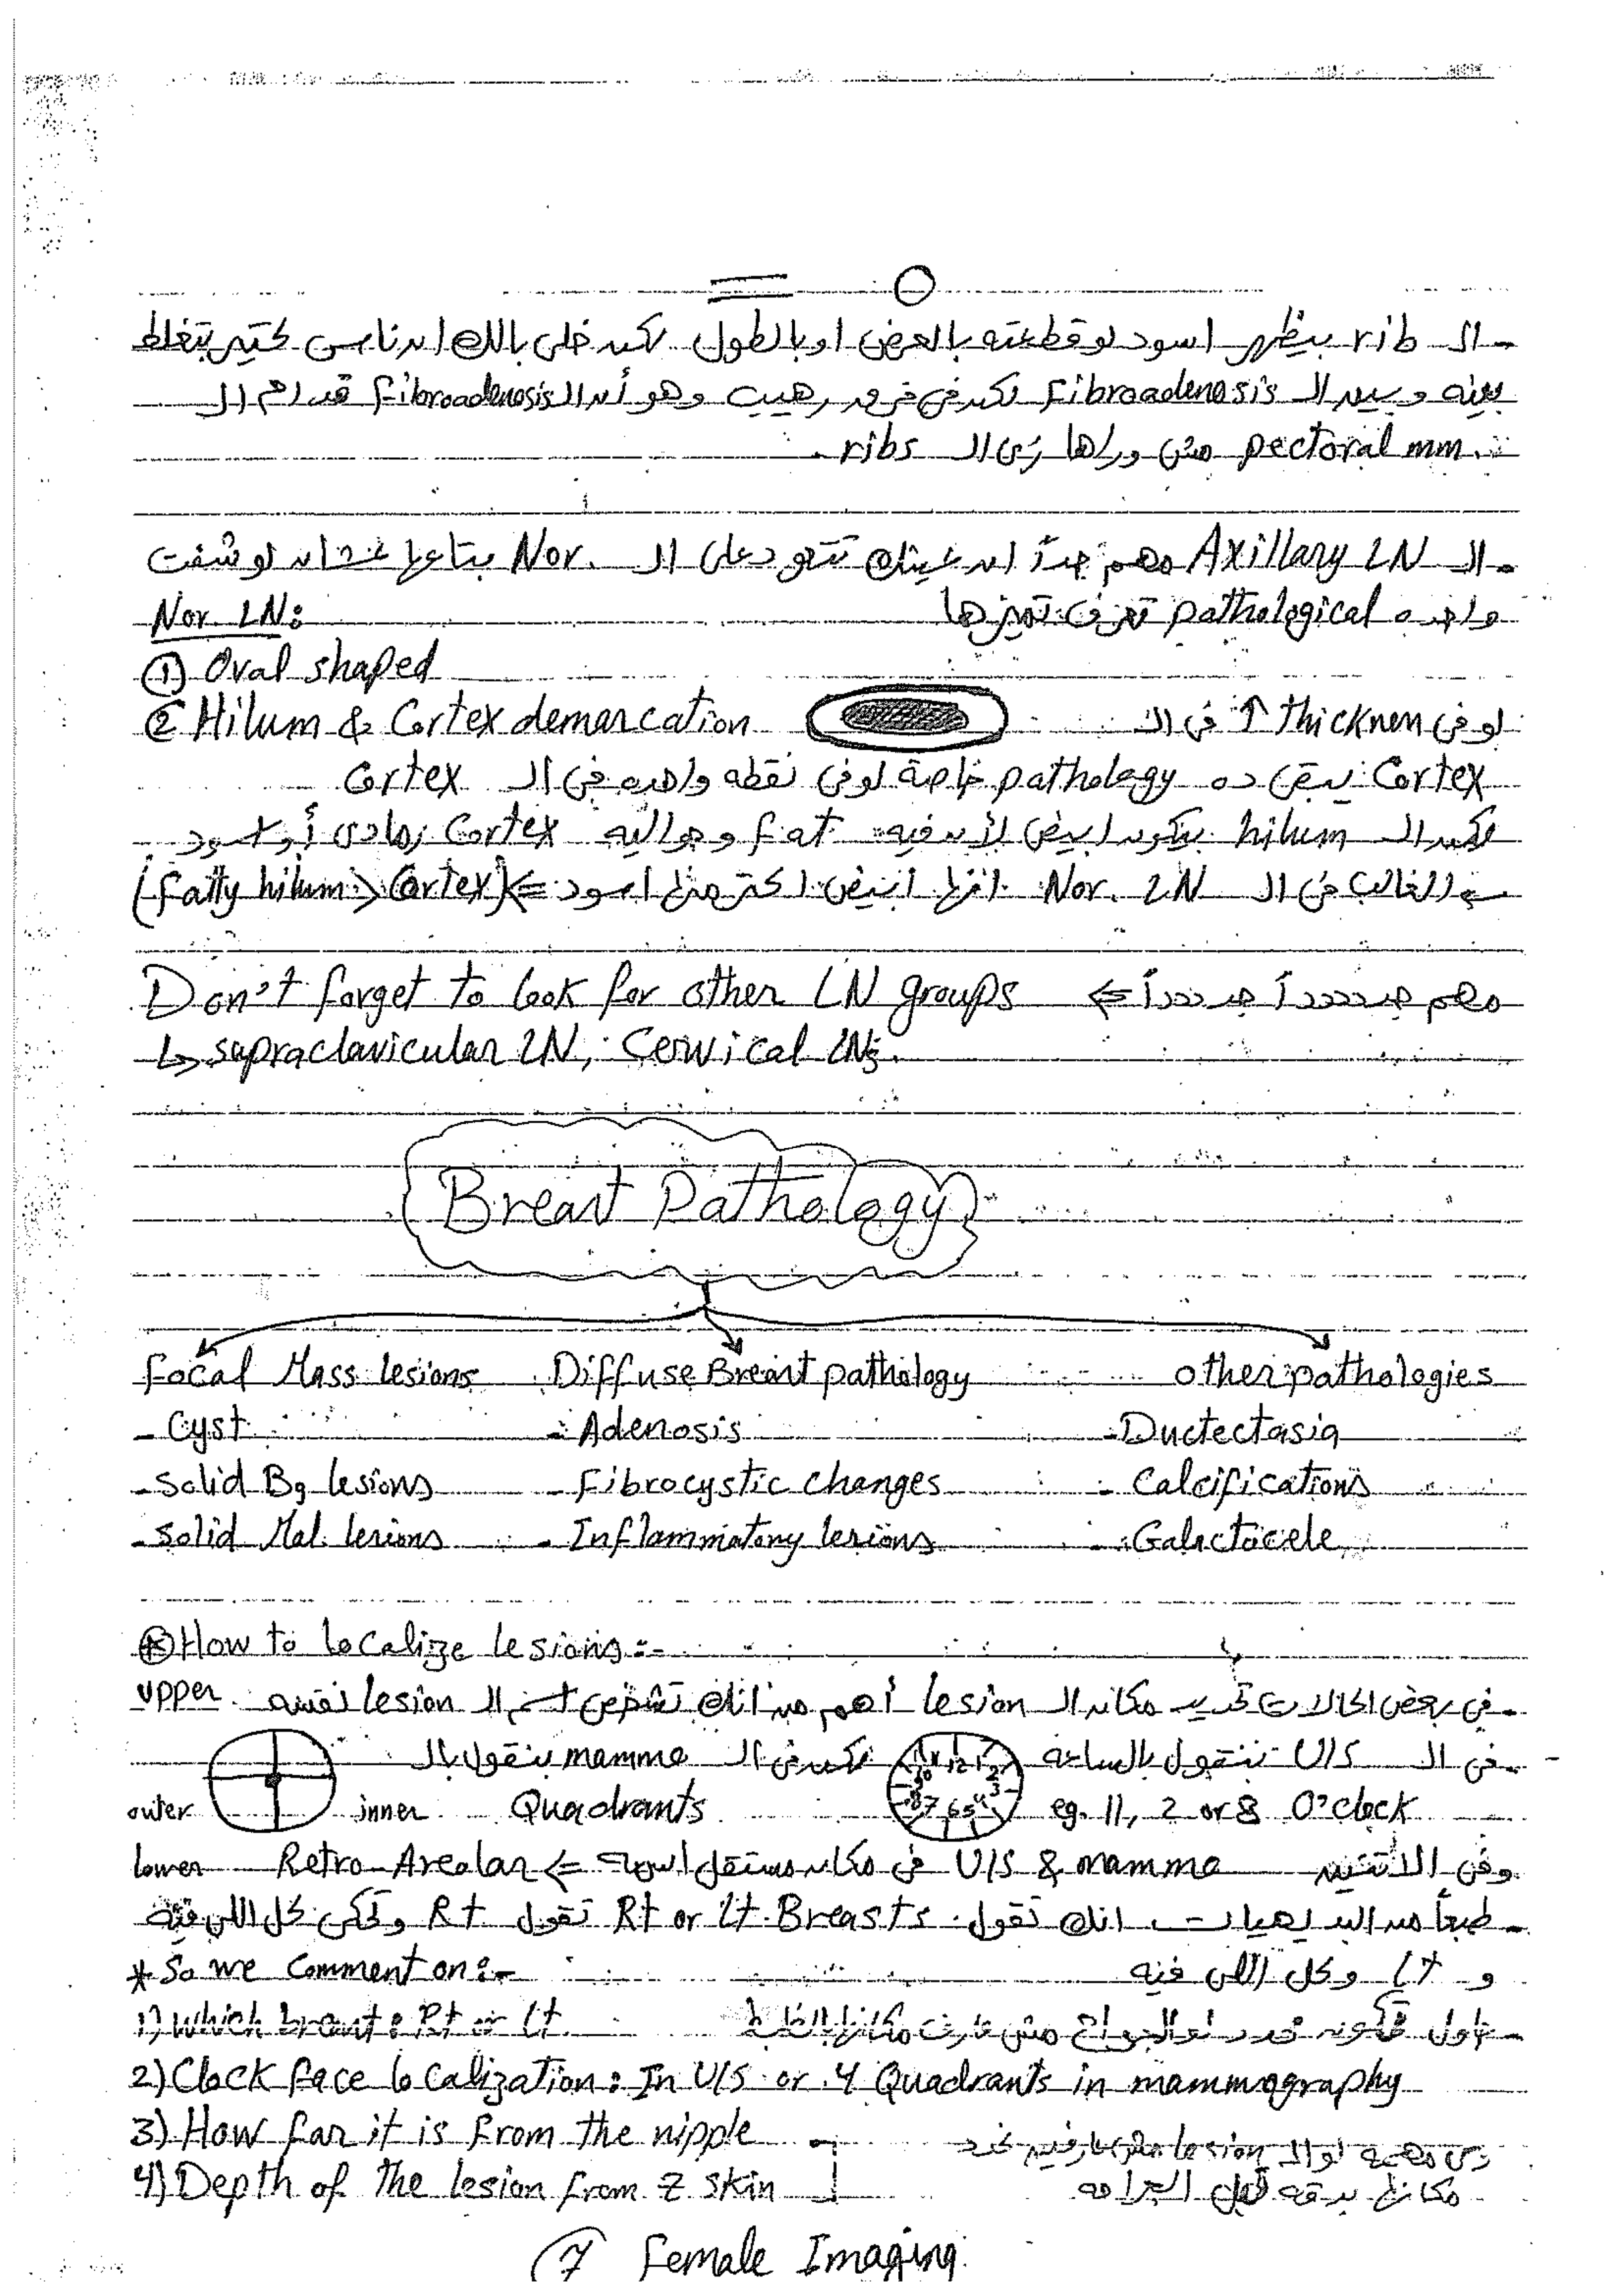 - الـ rib بيظهر اسود لو قطعته بالعرض او بالطول لكن خلي بالك ان ناس كتير بتغلط
بينه وبين الـ Fibroadenosis لكن في فرق رهيب وهو أن الـ Fibroadenosis قدام الـ
pectoral mm. مش وراها زي الـ ribs.
- الـ Axillary LN مهم جداً ان عينك تتعود على الـ Nor. بتاعها عشان لو شفت
واحده pathological تعرف تميزها
Nor. LN:
① Oval shaped
② Hilum & Cortex demarcation لو في ↑ thicknen في الـ
Cortex يبقى ده pathology خاصة لو في نقطه واحده في الـ Cortex
لكن الـ hilum بيكون ابيض لأن فيه fat وحواليه Cortex رمادي أو اسود
الغالب في الـ Nor. LN انها ابيض اكتر منها اسود ⇐ (fatty hilum > Cortex)
مهم جدددداً جدددداً ⇐ Don't forget to look for other LN groups
↳ supraclavicular LN, Cervical LNs.
Breast Pathology
Focal Mass lesions Diffuse Breast pathology other pathologies
- Cyst - Adenosis - Ductectasia
- Solid Bg lesions - Fibrocystic changes - Calcifications
- Solid Mal. lesions - Inflammatory lesions - Galactocele
⊛ How to localize lesions:-
- في بعض الحالات تحديد مكان الـ lesion أهم من انك تشخص اسم الـ lesion نفسه upper
- في الـ U/S بنقول بالساعه 11 12 1 2 3 4 5 6 7 8 9 10 لكن في الـ mammo بنقول بالـ
eg. 11, 2 or 8 O'clock Quadrants inner outer
وفي الاتنين U/S & mammo في مكان مستقل اسمه ⇐ Retro-Areolar lower
- طبعاً من البديهيات انك تقول Rt or Lt Breasts. تقول Rt وتحكي كل اللي فيه
و Lt وكل اللي فيه
* So we Comment on:-
1) Which breast: Rt or Lt
2) Clock face localization: In U/S or 4 Quadrants in mammography
3) How far it is from the nipple
4) Depth of the lesion from Z skin
دي مهمه لو الـ lesion
مكانها بدقه قبل الجراحه
7 Female Imaging